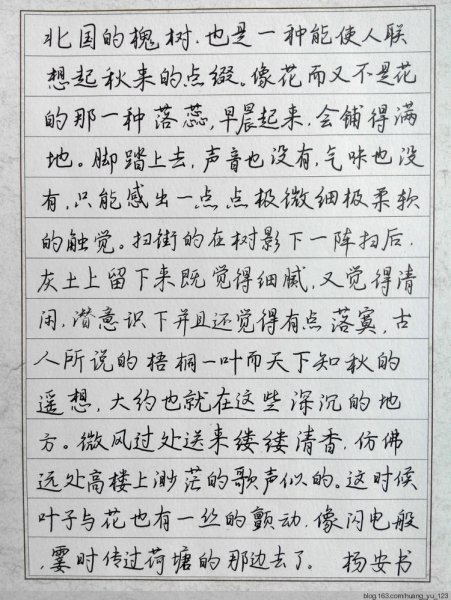 北国的槐树，也是一种能使人联
想起秋来的点缀。像花而又不是花
的那一种落蕊，早晨起来，会铺得满
地。脚踏上去，声音也没有，气味也没
有，只能感出一点点极微细极柔软
的触觉。扫街的在树影下一阵扫后，
灰土上留下来既觉得细腻，又觉得清
闲，潜意识下并且还觉得有点落寞，古
人所说的梧桐一叶而天下知秋的
遥想，大约也就在这些深沉的地
方。微风过处送来缕缕清香，仿佛
远处高楼上渺茫的歌声似的。这时候
叶子与花也有一丝的颤动，像闪电般
，霎时传过荷塘的那边去了。 杨安书
blog.163.com/huang_yu_123